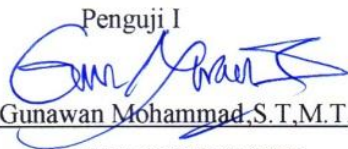 Penguji I
Gunawan Mohammad,S.T,M.T